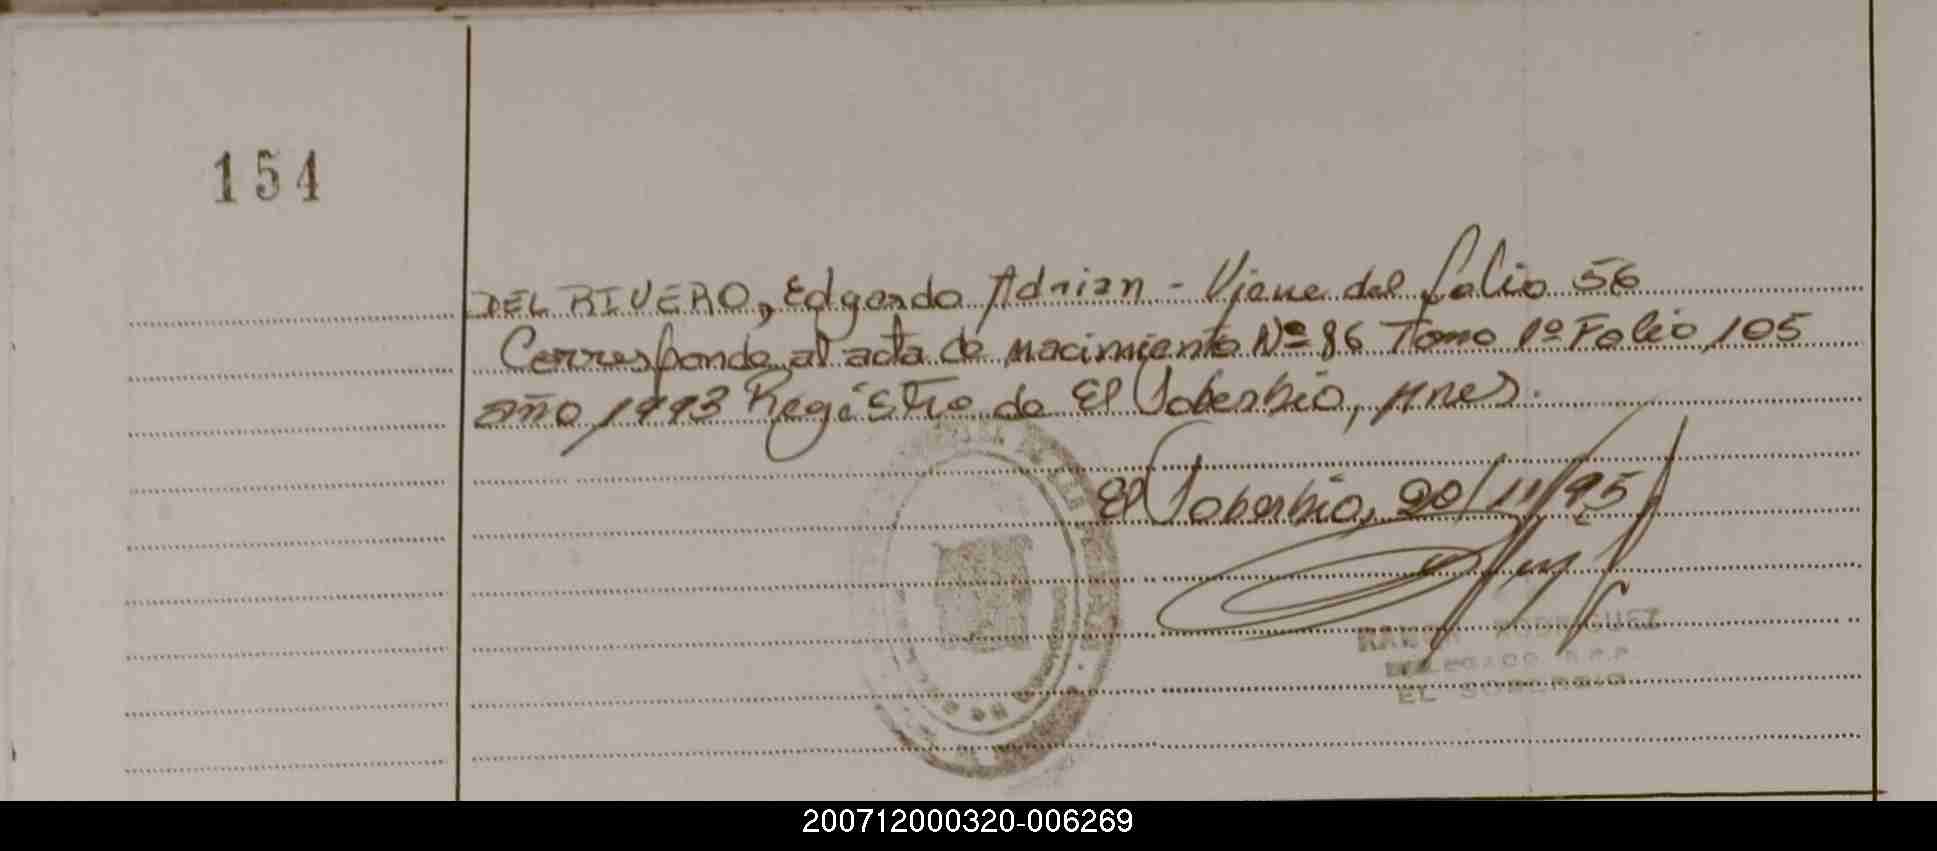 154
DEL RIVERO, Edgardo Adrian - Viene del folio 56
Corresponde al acta de nacimiento Nº 86 Tomo 1º Folio 105
año 1993 Registro de El Soberbio, Mnes.
El Soberbio, 20/11/95
RAMON RODRIGUEZ
DELEGADO R.P.P.
EL SOBERBIO
200712000320-006269